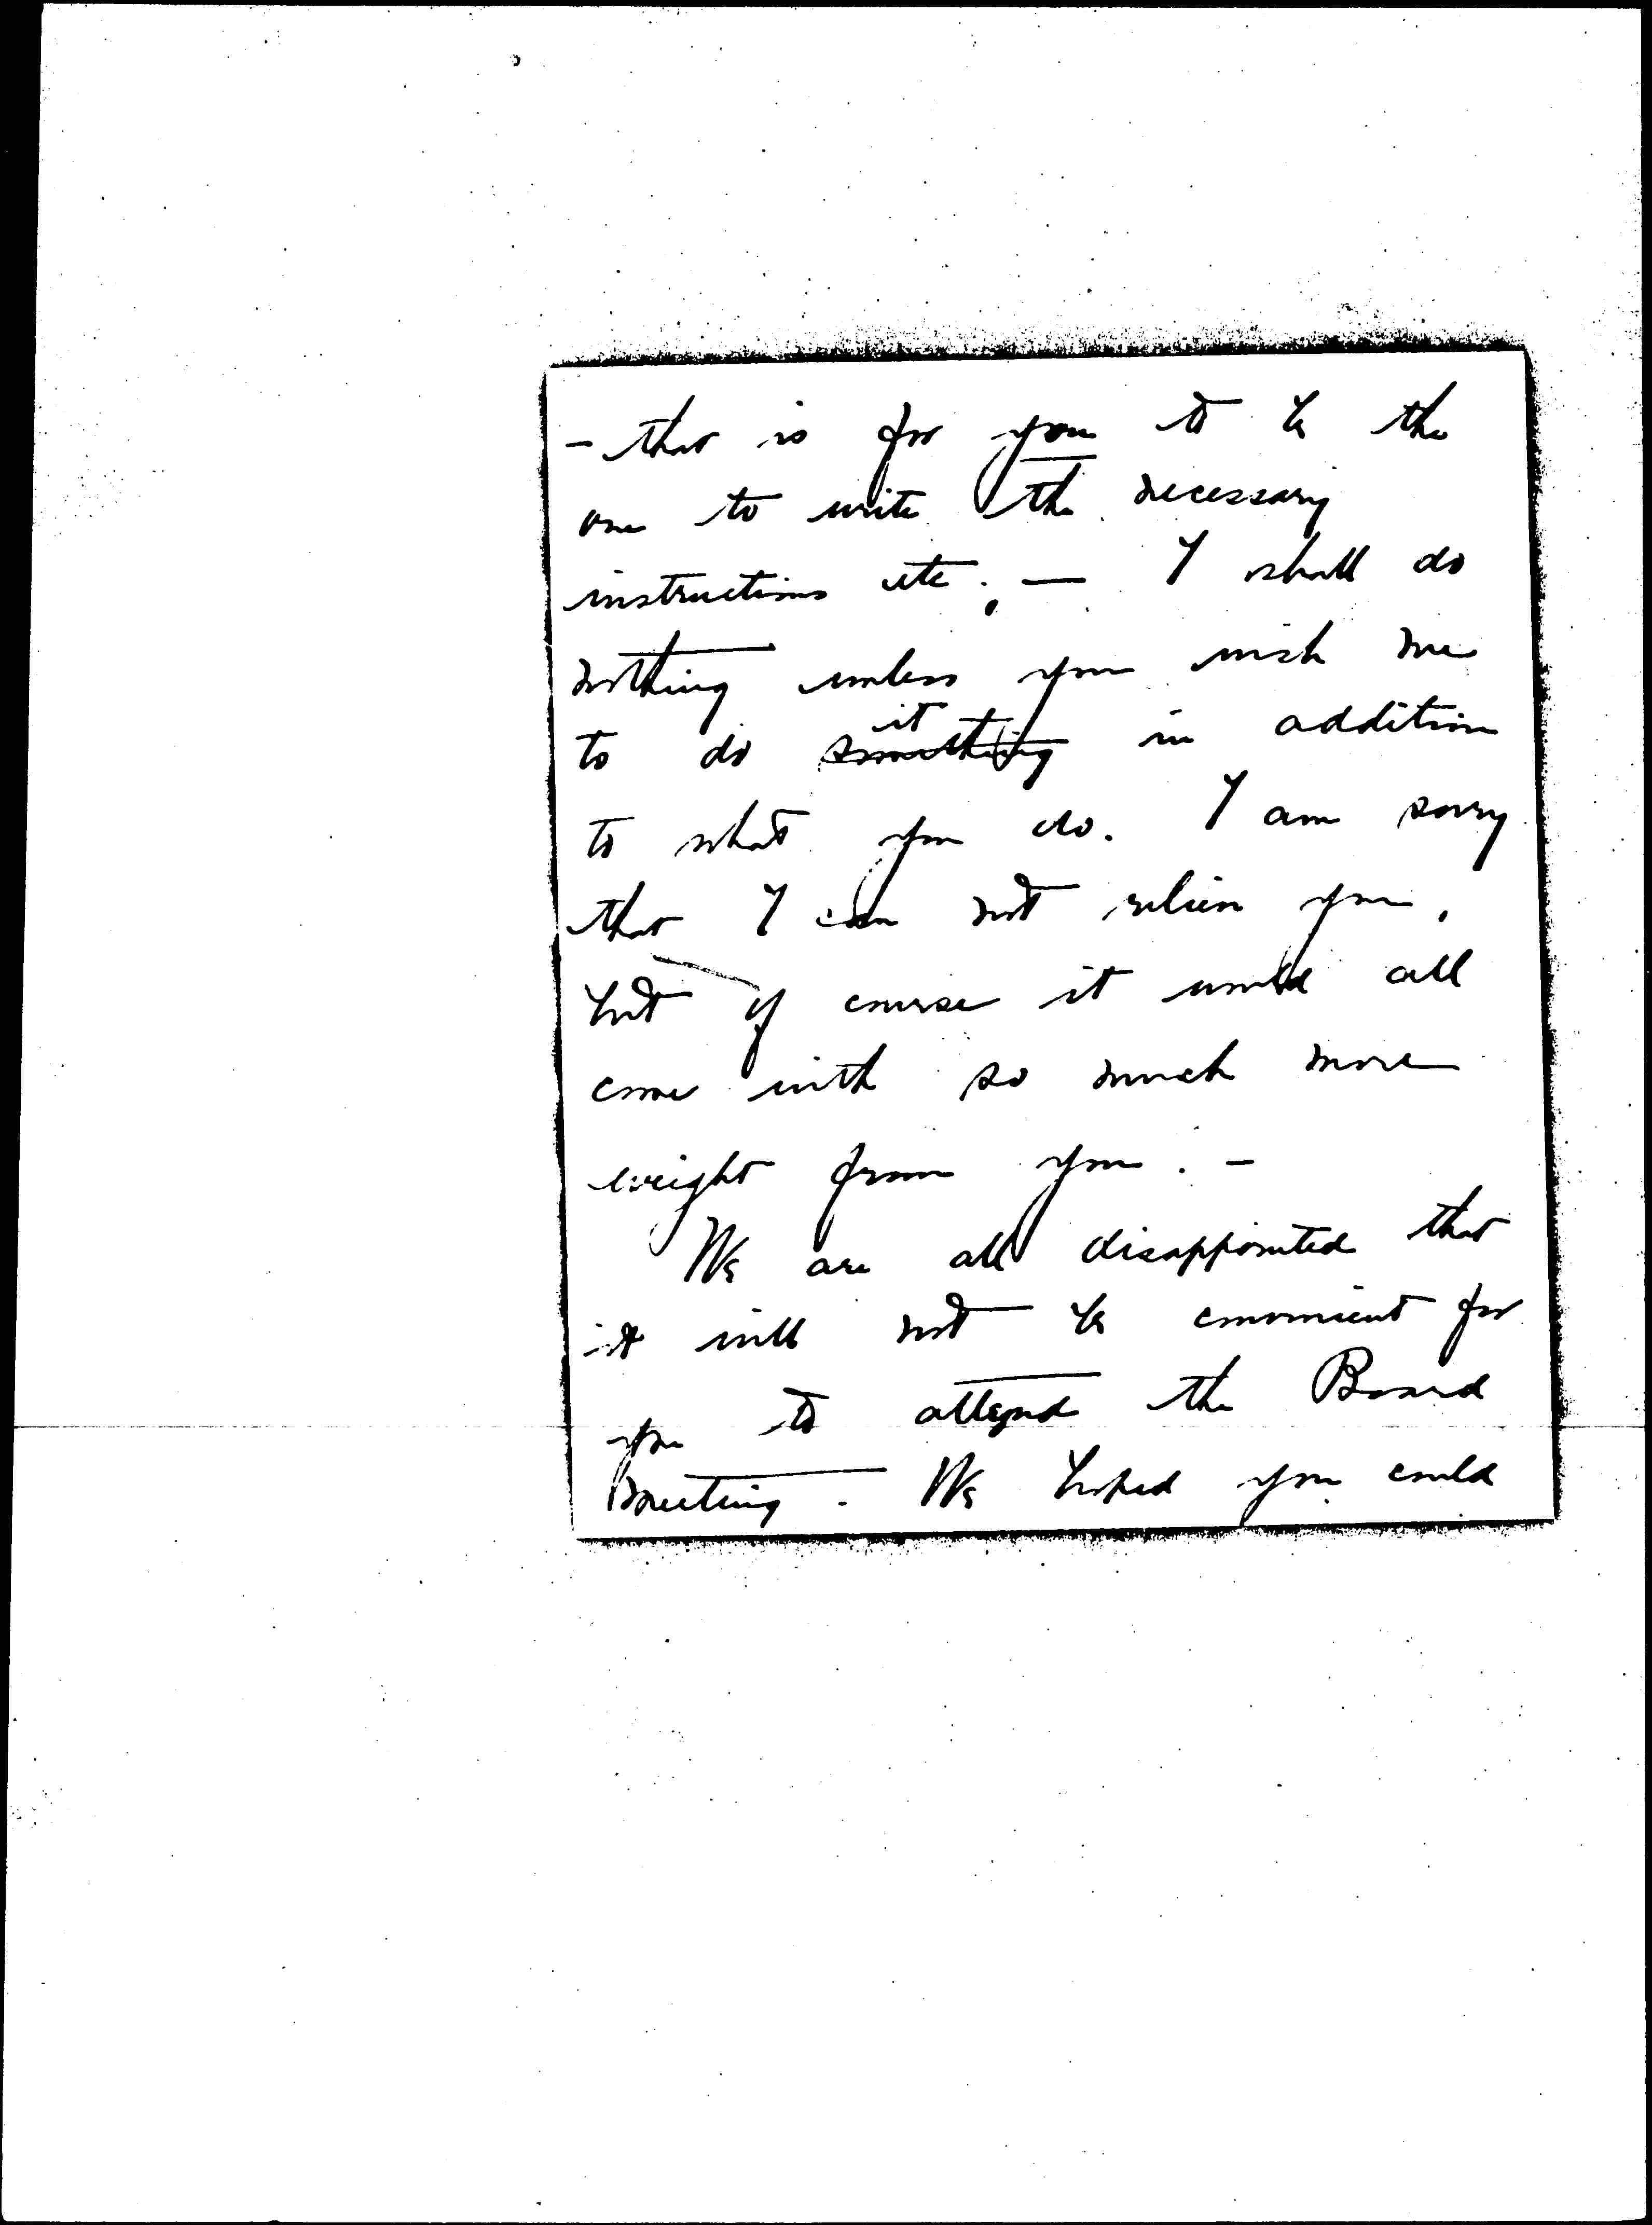 - that is for you to be the
one to write the necessary
instructions etc. — I shall do
nothing unless you wish me
to do ~~something~~ it in addition
to what you do. I am sorry
that I can not relieve you,
but of course it would all
come with so much more
weight from you. -
We are all disappointed that
it will not be convenient for
you to attend the Board
meeting. We hoped you could